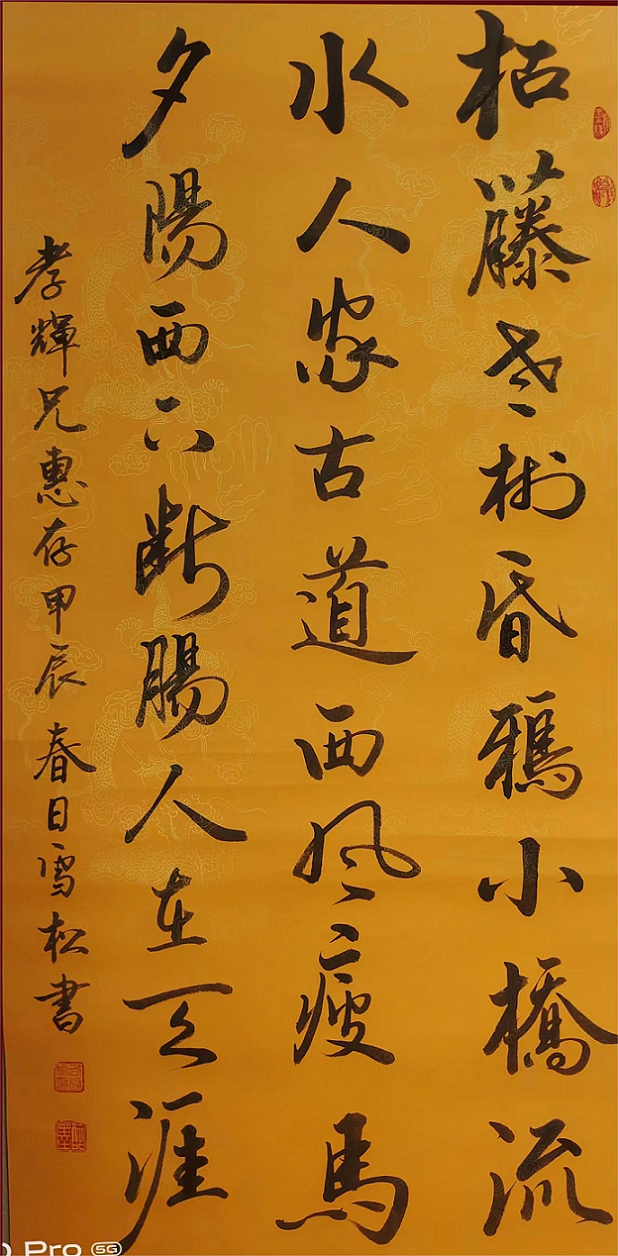 枯藤老樹昏鴉小橋流
水人家古道西風瘦馬
夕陽西下斷腸人在天涯
孝輝兄惠存甲辰春日雪松書
Pro 5G